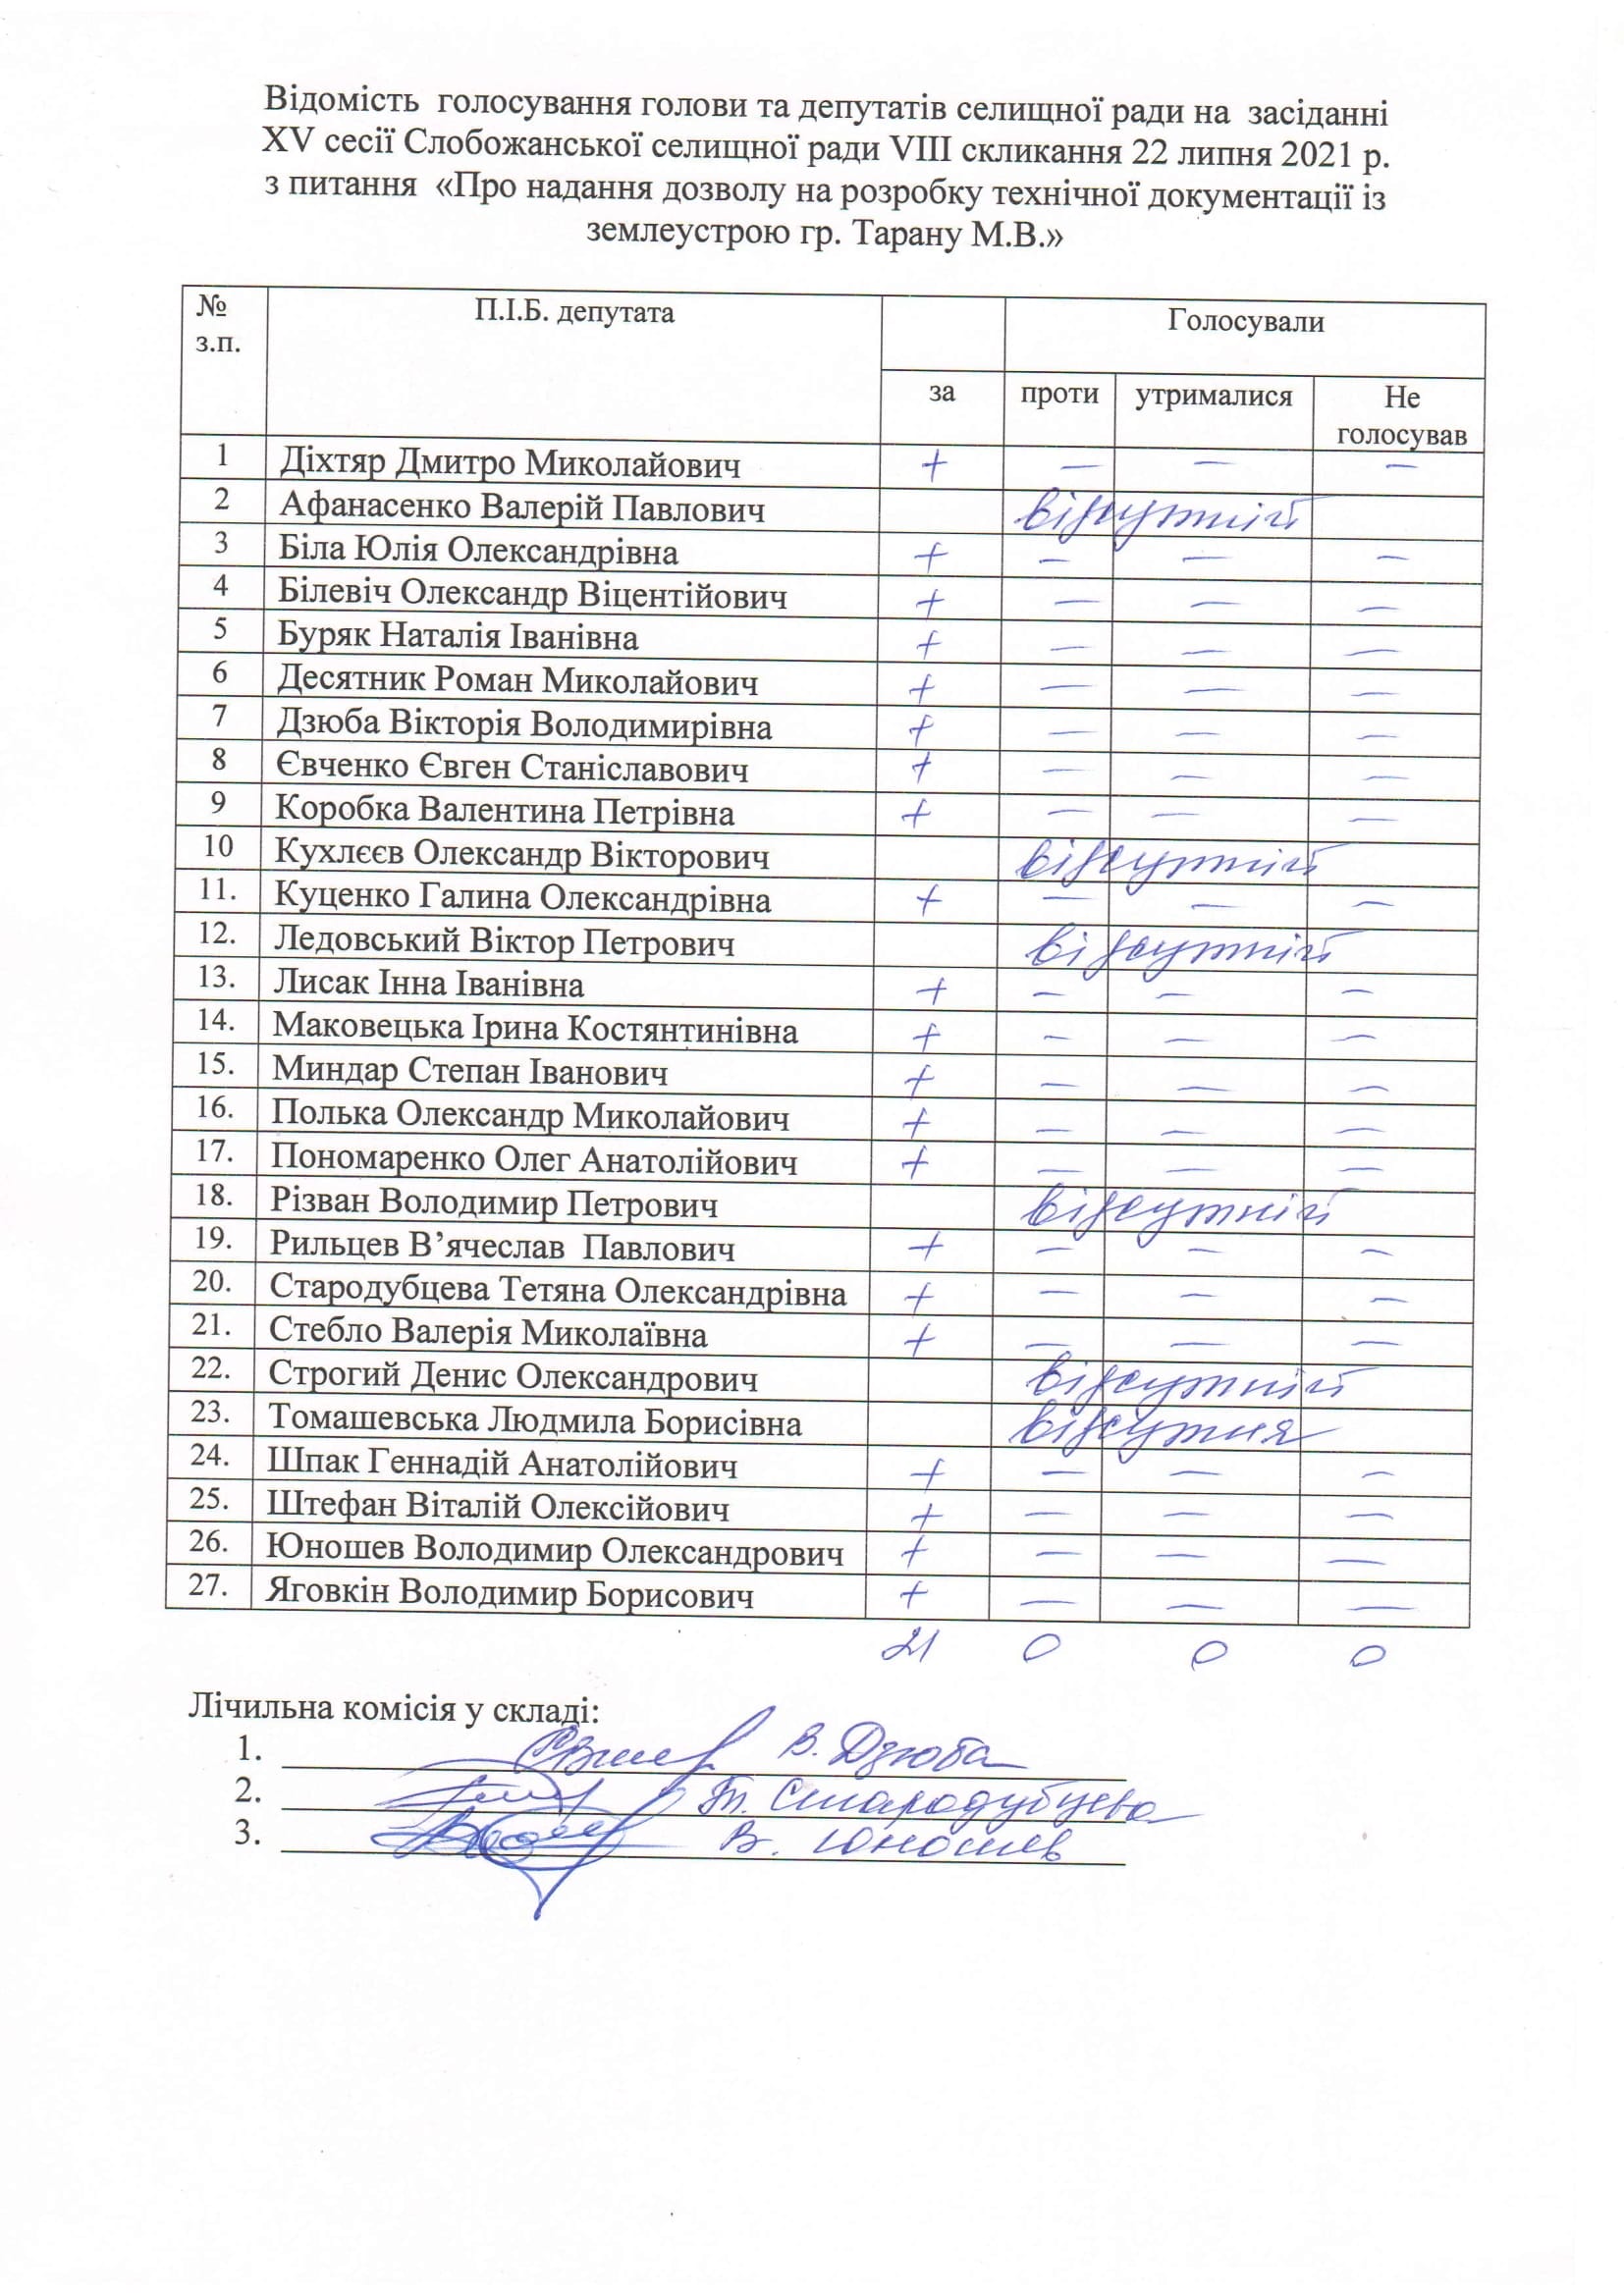 Відомість голосування голови та депутатів селищної ради на засіданні
XV сесії Слобожанської селищної ради VIII скликання 22 липня 2021 р.
з питання «Про надання дозволу на розробку технічної документації із
землеустрою гр. Тарану М.В.»
№ з.п. П.І.Б. депутата Голосували
за проти утрималися Не голосував
1 Діхтяр Дмитро Миколайович + — — —
2 Афанасенко Валерій Павлович відсутній
3 Біла Юлія Олександрівна + — — —
4 Білевіч Олександр Віцентійович + — — —
5 Буряк Наталія Іванівна + — — —
6 Десятник Роман Миколайович + — — —
7 Дзюба Вікторія Володимирівна + — — —
8 Євченко Євген Станіславович + — — —
9 Коробка Валентина Петрівна + — — —
10 Кухлєєв Олександр Вікторович відсутній
11. Куценко Галина Олександрівна + — — —
12. Ледовський Віктор Петрович відсутній
13. Лисак Інна Іванівна + — — —
14. Маковецька Ірина Костянтинівна + — — —
15. Миндар Степан Іванович + — — —
16. Полька Олександр Миколайович + — — —
17. Пономаренко Олег Анатолійович + — — —
18. Різван Володимир Петрович відсутній
19. Рильцев В’ячеслав Павлович + — — —
20. Стародубцева Тетяна Олександрівна + — — —
21. Стебло Валерія Миколаївна + — — —
22. Строгий Денис Олександрович відсутній
23. Томашевська Людмила Борисівна відсутня
24. Шпак Геннадій Анатолійович + — — —
25. Штефан Віталій Олексійович + — — —
26. Юношев Володимир Олександрович + — — —
27. Яговкін Володимир Борисович + — — —
21 0 0 0
Лічильна комісія у складі:
1. В. Дзюба
2. Т. Стародубцева
3. В. Юношев